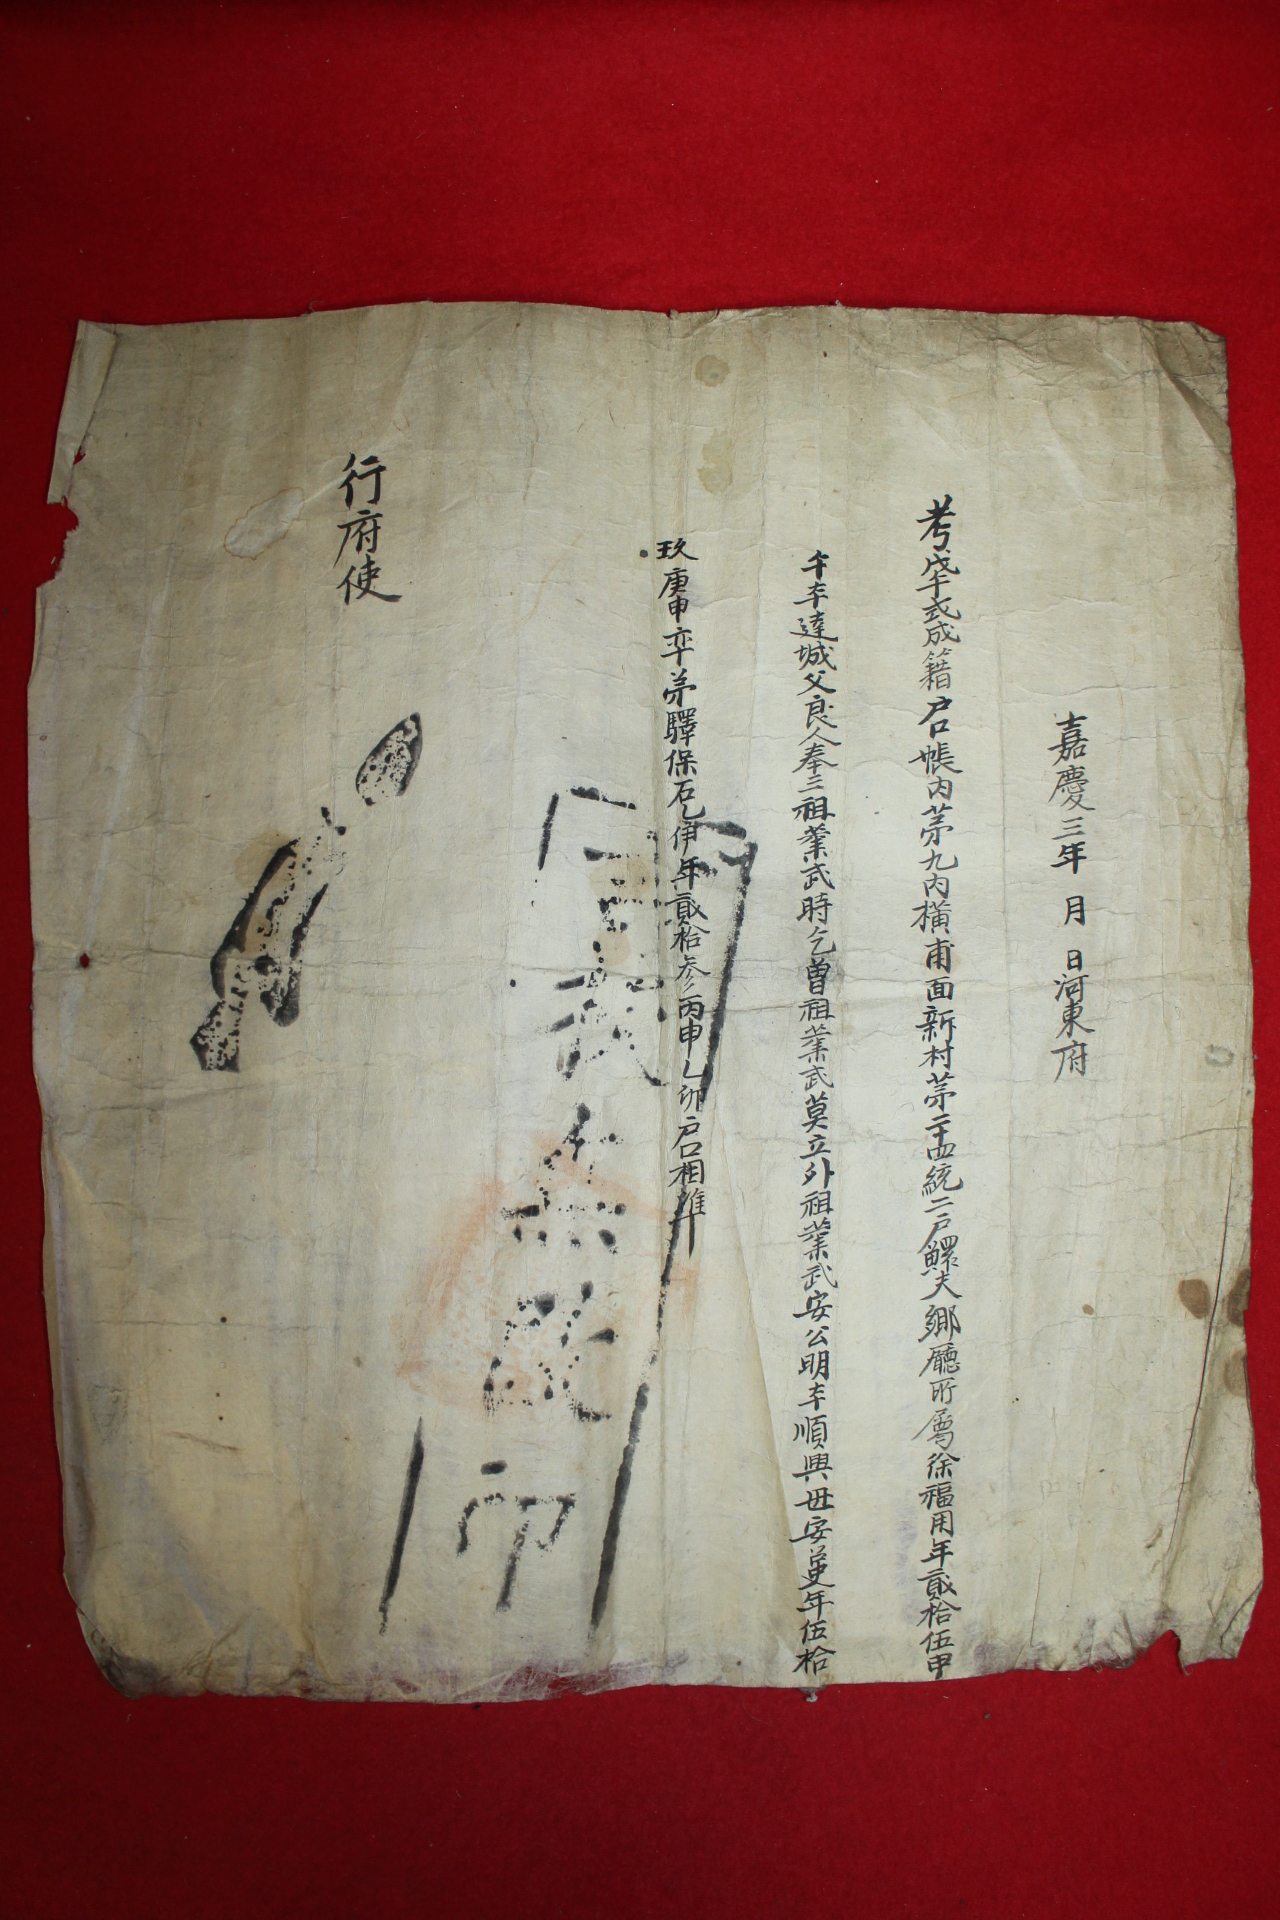 嘉慶三年 月 日河東府
考戊午式成籍戶口帳內苐九內橫甫面新村苐二十四統二戶鰥夫鄕廳所屬徐福用年貳拾伍甲
午本達城父良人奉三祖業武時乞曾祖業武莫立外祖業武安公明本順興母安 年伍拾
玖庚申卒弟驛保石乙伊年貳拾參丙申乙卯戶口相準
行府使
印